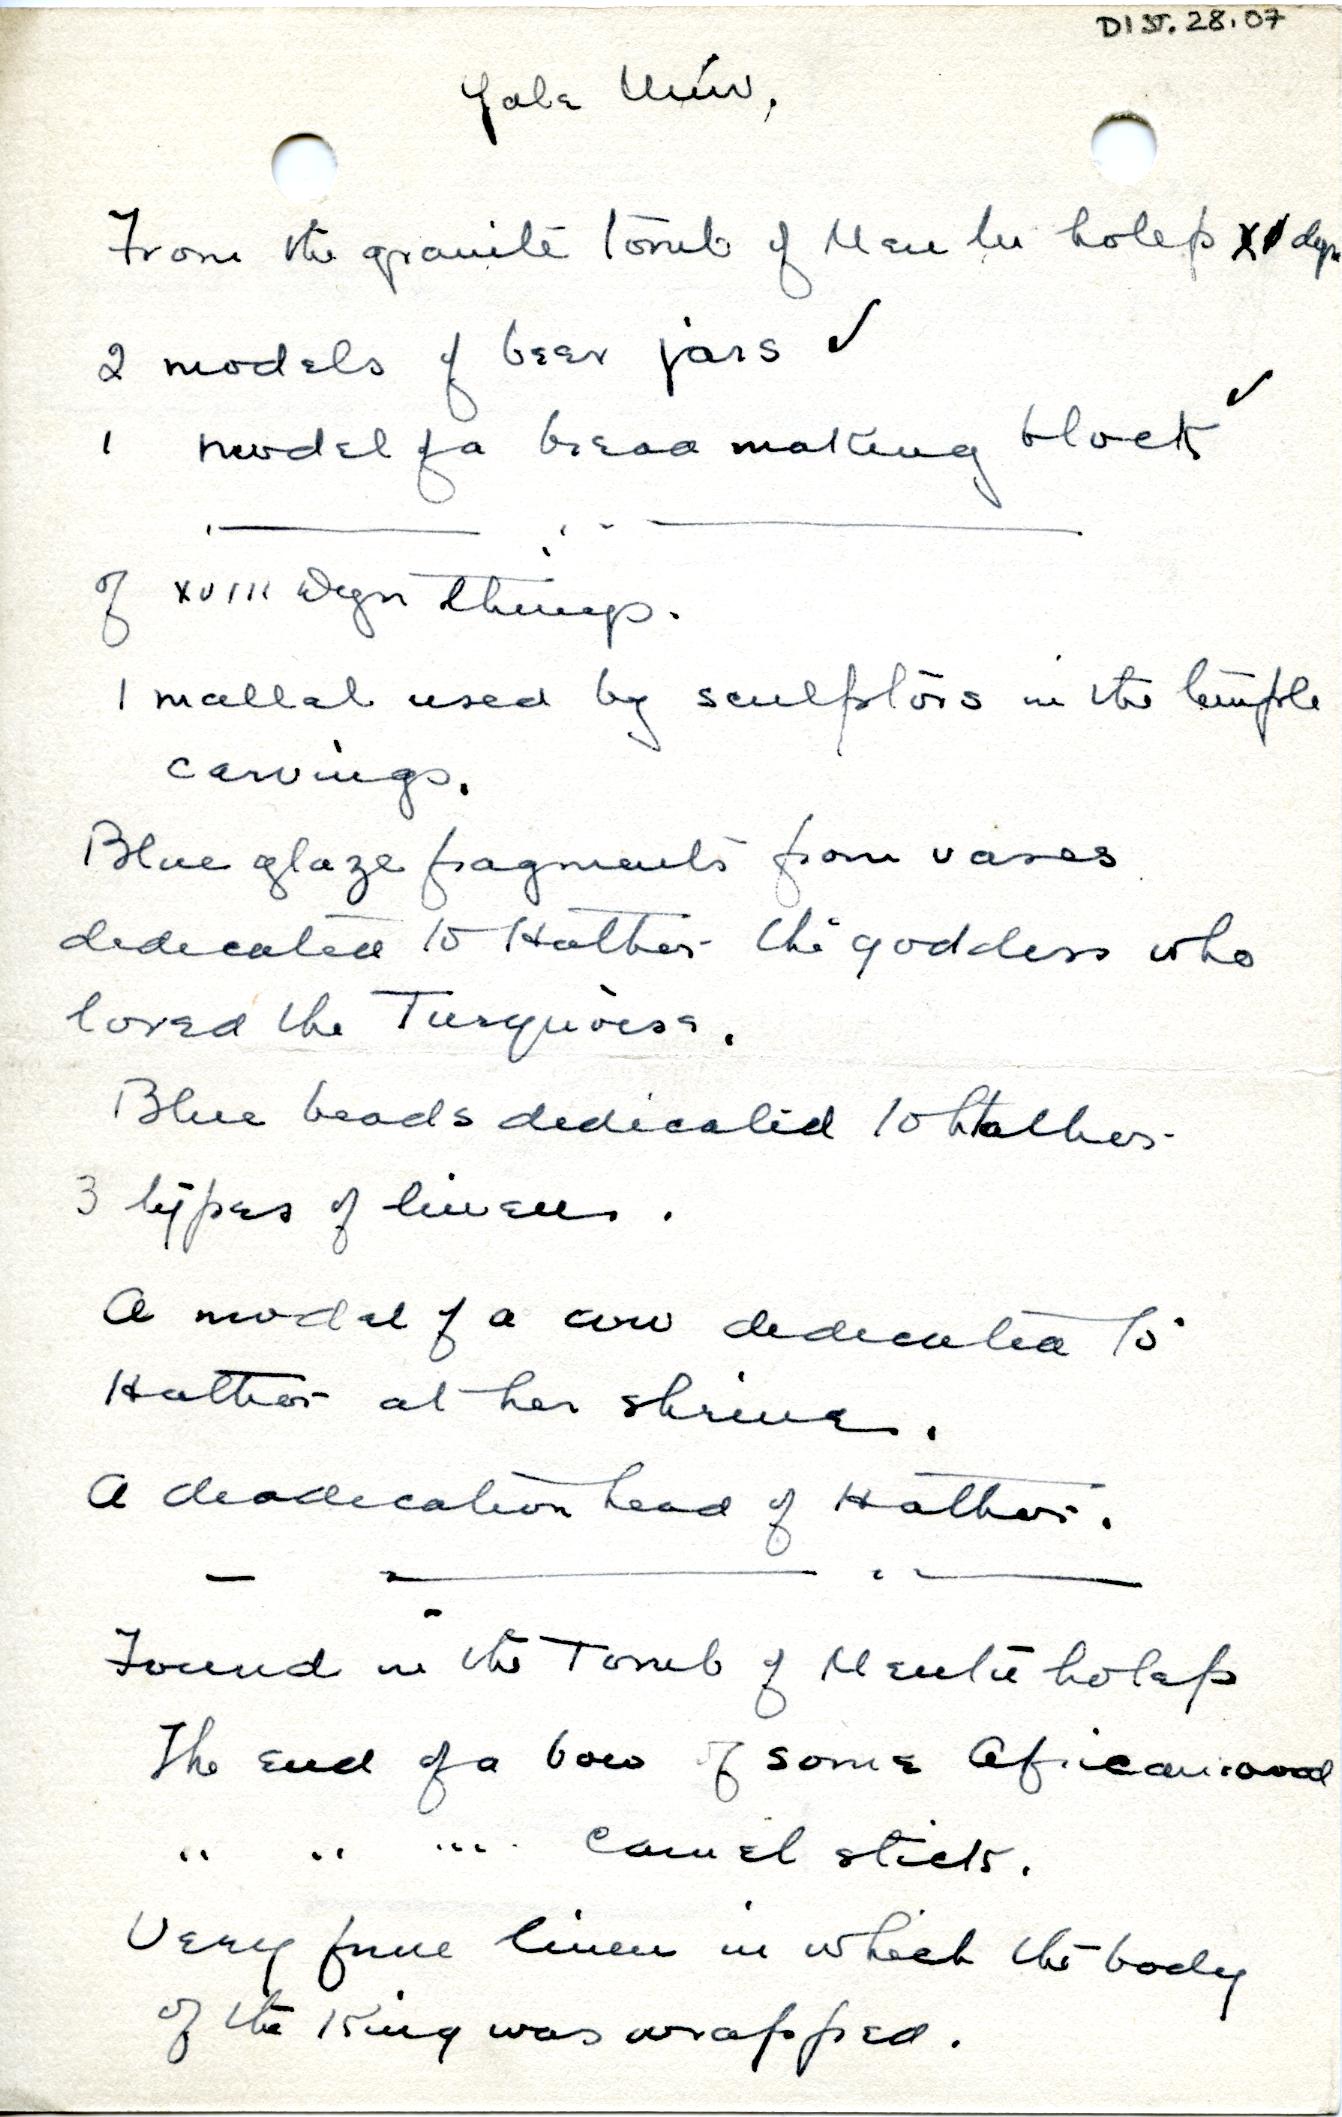 DIST. 28.07
Yale Univ.
From the granite tomb of Mentu hotep XI dyn
2 models of beer jars ✓
1 model of a bread making block ✓
of XVIII Dyn things.
1 mallat used by sculptors in the temple
carvings.
Blue glaze fragments from vases
dedicated to Hathor the goddess who
loved the Turquoise.
Blue beads dedicated to Hathor
3 types of linen.
A model of a cow dedicated to
Hathor at her shrine.
A deadication head of Hathor.
Found in the Tomb of Mentu hotep
The end of a bow of some African wood
" " " camel stick.
Very fine linen in which the body
of the King was wrapped.